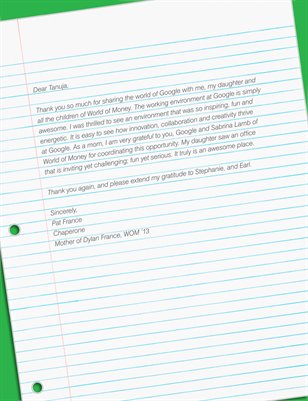 Dear Tanuja,
Thank you so much for sharing the world of Google with me, my daughter and
all the children of World of Money. The working environment at Google is simply
awesome. I was thrilled to see an environment that was so inspiring, fun and
energetic. It is easy to see how innovation, collaboration and creativity thrive
at Google. As a mom, I am very grateful to you, Google and Sabrina Lamb of
World of Money for coordinating this opportunity. My daughter saw an office
that is inviting yet challenging; fun yet serious. It truly is an awesome place.
Thank you again, and please extend my gratitude to Stephanie, and Earl.
Sincerely,
Pat France
Chaperone
Mother of Dylan France, WOM '13